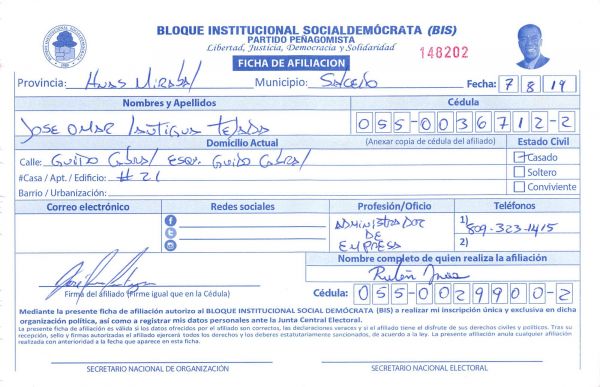 BLOQUE INSTITUCIONAL SOCIALDEMÓCRATA (BIS)
PARTIDO PEÑAGOMISTA
Libertad, Justicia, Democracia y Solidaridad
148202
FICHA DE AFILIACION
Provincia: Hnas Mirabal Municipio: Salcedo Fecha: 7 8 19
Nombres y Apellidos Cédula
JOSE OMAR Lantigua Tejada 055-0036712-2
Domicilio Actual (Anexar copia de cédula del afiliado) Estado Civil
Calle: Guido Cabral Esq. Guido Cabral Casado
#Casa / Apt. / Edificio: # 21 Soltero
Barrio / Urbanización: Conviviente
Correo electrónico Redes sociales Profesión/Oficio Teléfonos
ADMINISTRADOR DE EMPRESA 1) 809-323-1415
2)
Nombre completo de quien realiza la afiliación
Rubén
Firma del afiliado (Firme igual que en la Cédula) Cédula: 055-0029900-2
Mediante la presente ficha de afiliación autorizo al BLOQUE INSTITUCIONAL SOCIAL DEMÓCRATA (BIS) a realizar mi inscripción única y exclusiva en dicha
organización política, así como a registrar mis datos personales ante la Junta Central Electoral.
La presente ficha de afiliación es válida si los datos ofrecidos por el afiliado son correctos, las declaraciones veraces y si el afiliado tiene el disfrute de sus derechos civiles y políticos. Tras su
recepción, sello y firmas autorizadas el afiliado ejercerá todos los derechos y los deberes estatutariamente sancionados, de acuerdo a la ley. La presente afiliación anula cualquier afiliación
realizada con anterioridad a la fecha que aparece en esta ficha.
SECRETARIO NACIONAL DE ORGANIZACIÓN SECRETARIO NACIONAL ELECTORAL